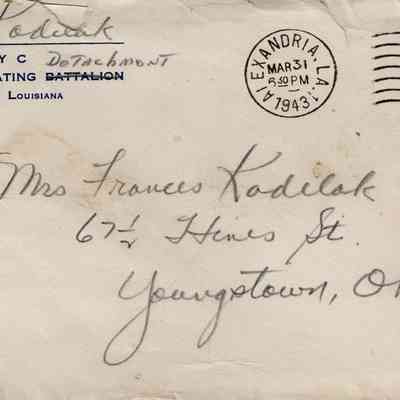 Kodilak
Y C Detachment
ATING BATTALION
LOUISIANA
ALEXANDRIA, LA.
MAR 31
6 30 PM
1943
Mrs Frances Kodilak
67 1/2 Hines St.
Youngstown, Oh